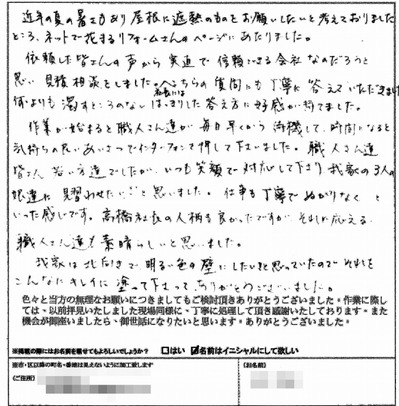 近年の夏の暑さもあり屋根に遮熱のものをお願いしたいと考えておりました
ところ、ネットで花まるリフォームさんのページにあたりました。
依頼した皆さんの声から実直で信頼できる会社なのだろうと
思い見積相談をしました。こちらの質問にも丁寧に答えていただきました
何よりも濁すところのないはっきりした答え方に好感が持てました。
作業が始まると職人さん達が毎日早くから待機して、時間になると
気持ちの良いあいさつでインターフォンを押して下さいました。職人さん達
皆さん若い方達でしたが、いつも笑顔で対応して下さり我家の3人の
娘達に見習わせたい…と思いました。仕事も丁寧でぬかりなく と
いった感じです。高橋社長の人柄も良かったですが それに応える
職人さん達も素晴らしいと思いました。
我家は北向きで明るい色の壁にしたいと思っていたので それを
こんなにキレイに塗って下さって ありがとうございました。
色々と当方の無理なお願いにつきましてもご検討頂きありがとうございました。作業に際し
ては、以前拝見いたしました現場同様に、丁寧に処理して頂き感謝いたしております。また
機会が御座いましたら、御世話になりたいと思います。ありがとうございます。
※掲載の際にはお名前を載せてもよろしいでしょうか? □はい ☑名前はイニシャルにして欲しい
※市・区以降の町名・番地は見えないように加工致します
(ご住所)
(お名前)